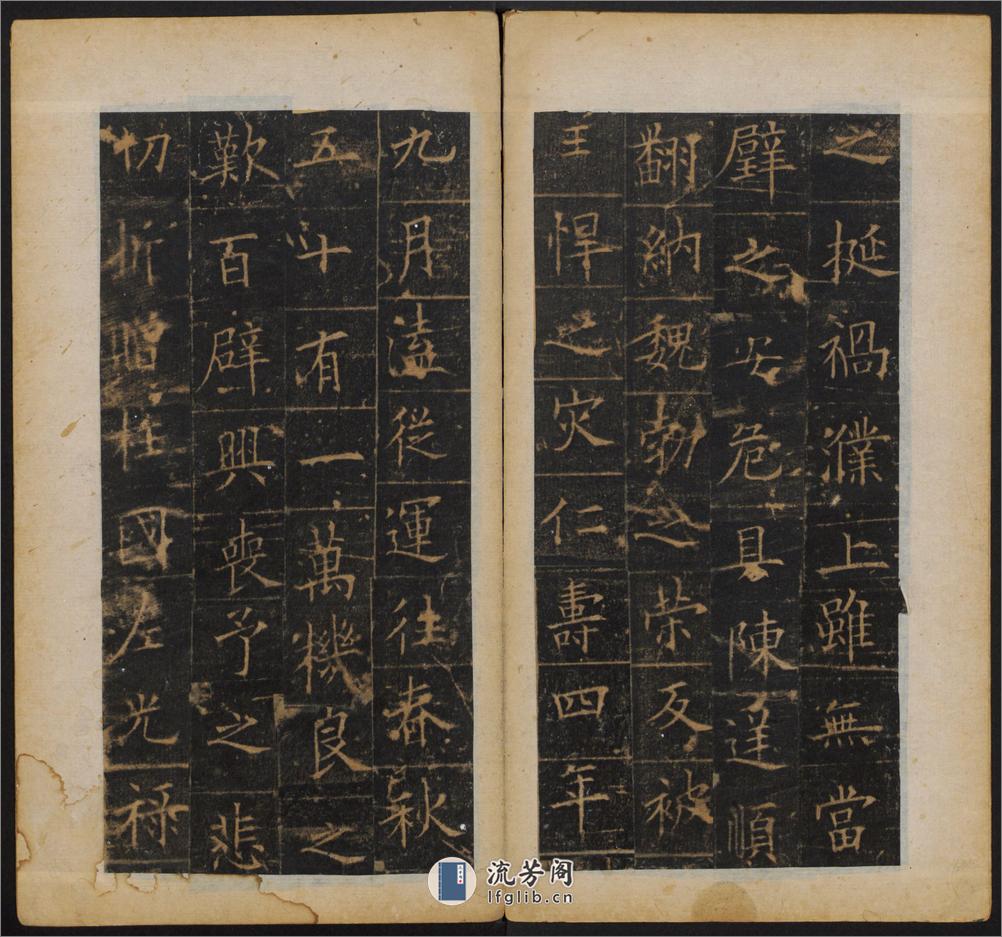 之挺禍濮上雖無當
璧之安危具陳逆順
翻納魏勃之荣反被
王悍之灾仁壽四年
九月溘從運往春秋
五十有一萬機良之
歎百辟興喪予之悲
切折贈柱國左光祿
流芳阁
lfglib.cn